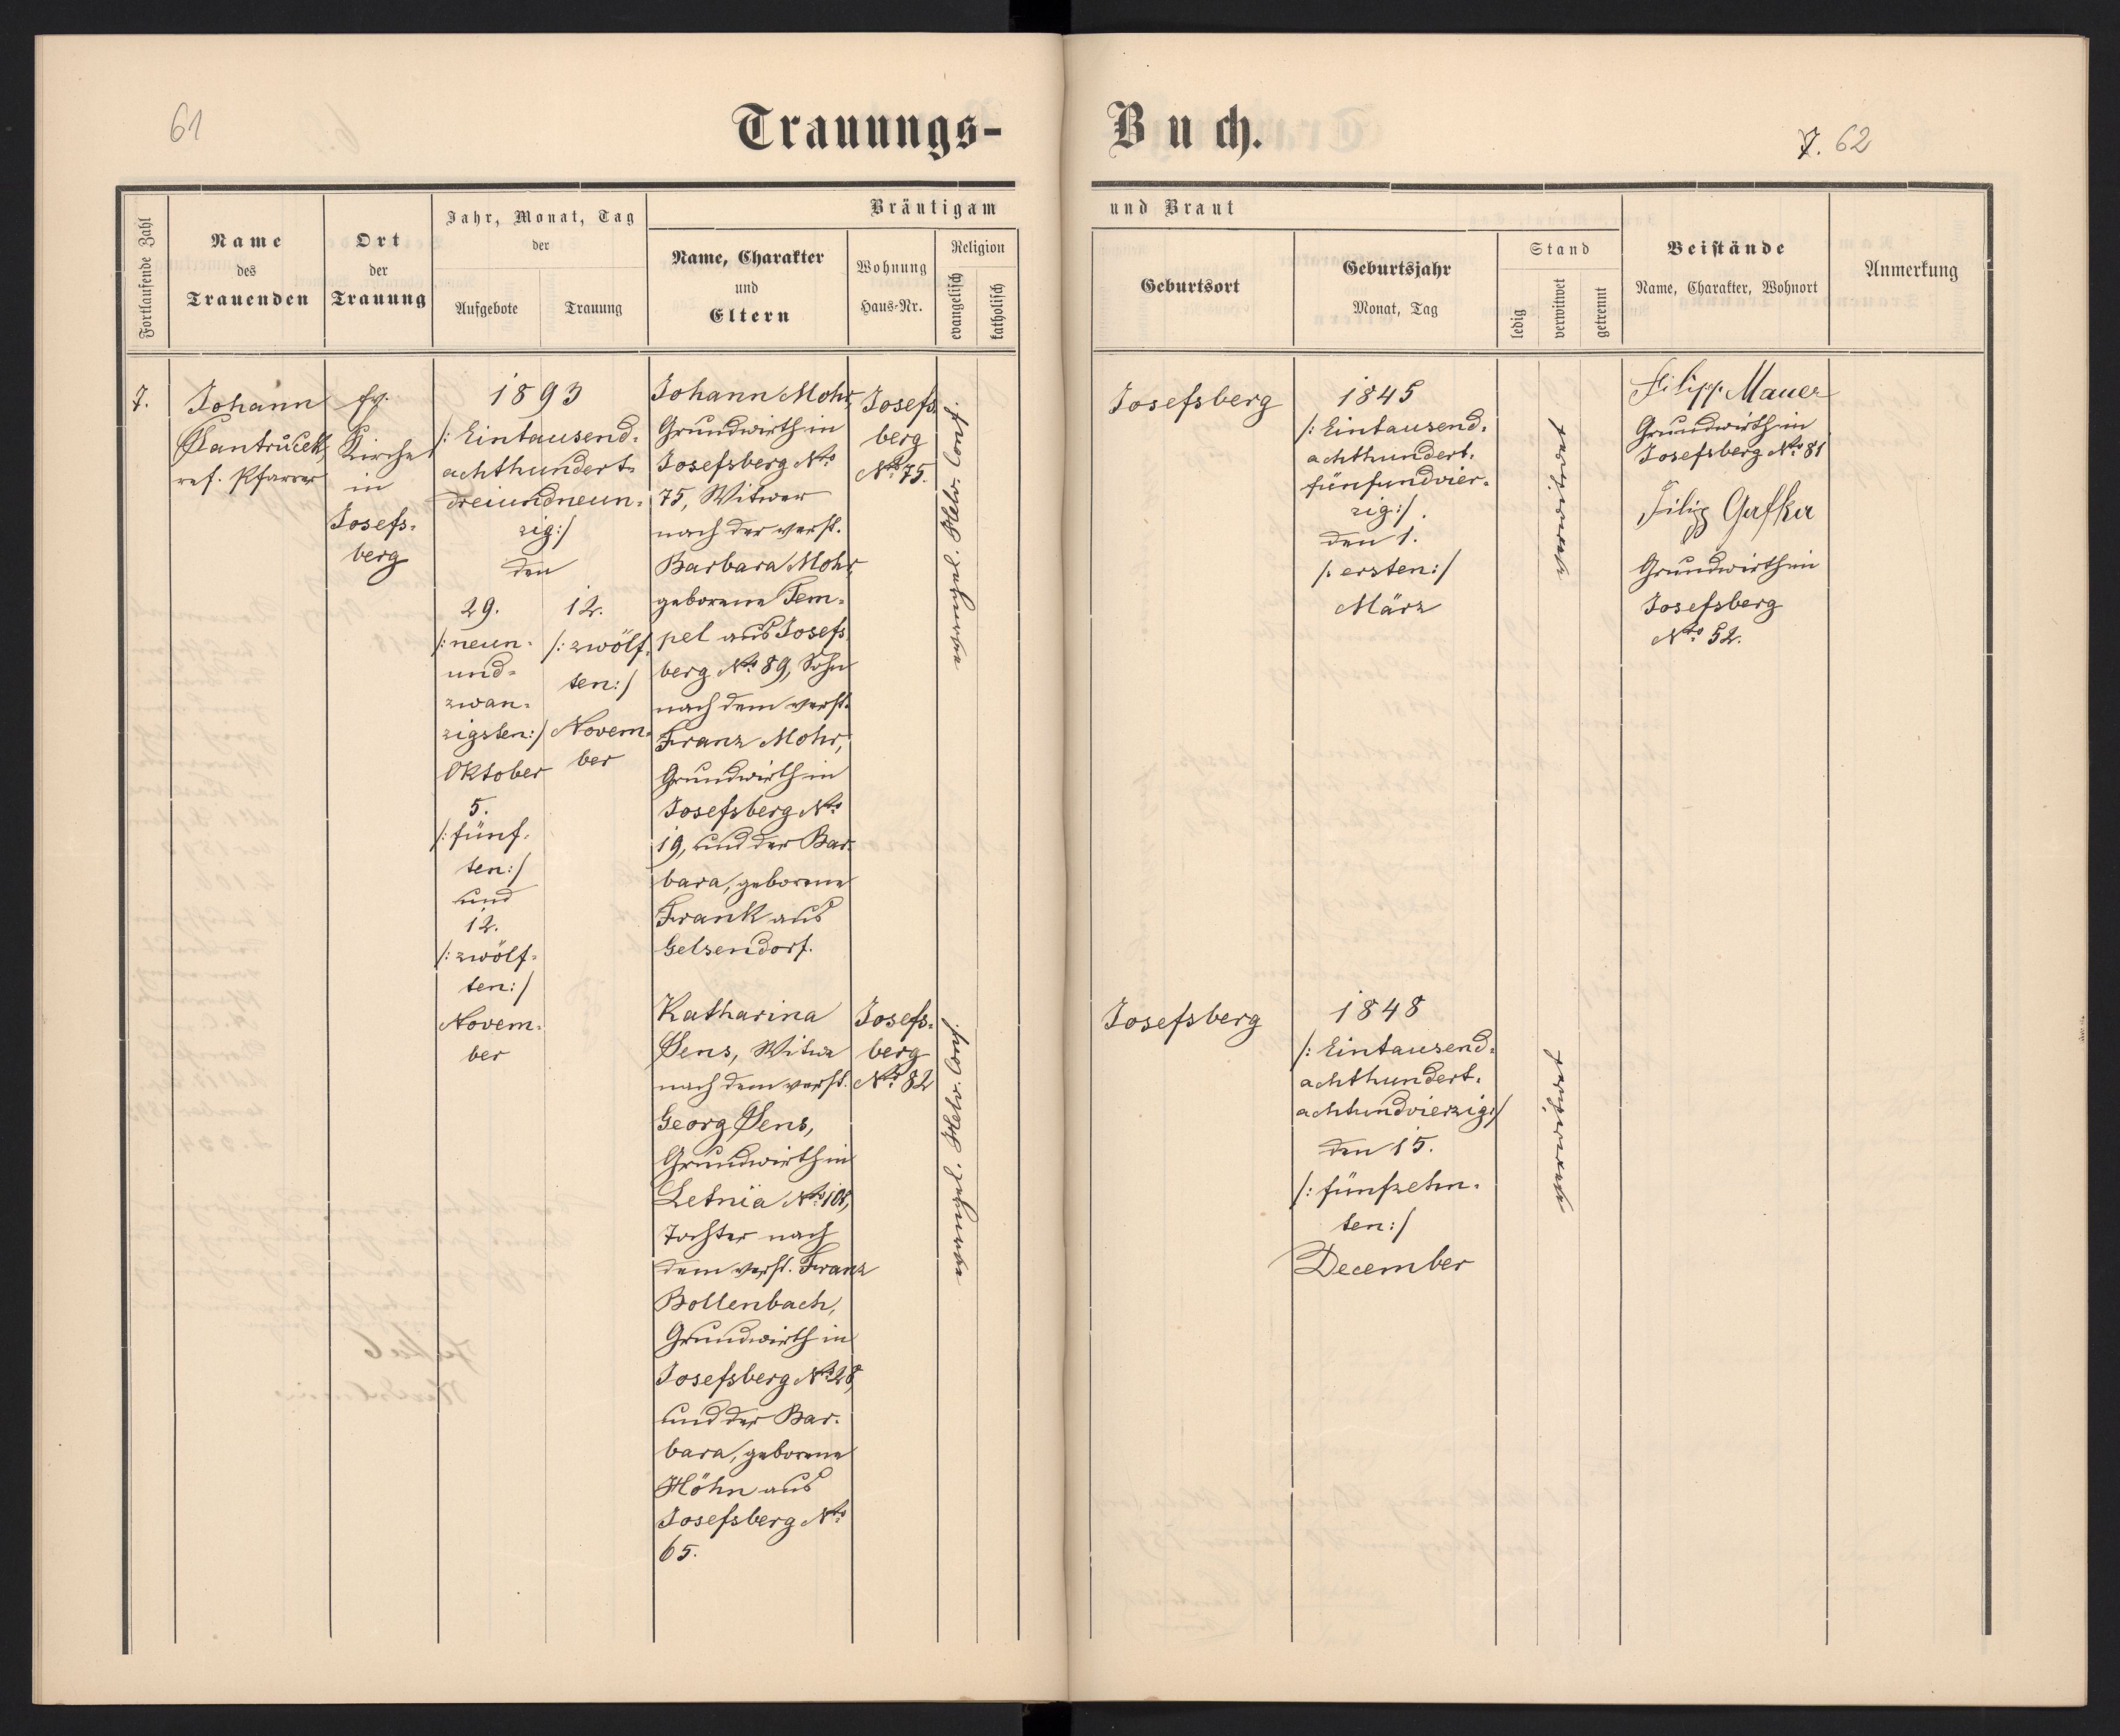 61
Trauungs-
Buch.
7. 62
Fortlaufende Zahl
Name
des
Trauenden
Ort
der
Trauung
Jahr, Monat, Tag
der
Aufgebote
Trauung
Bräutigam
und Braut
Name, Charakter
und
Eltern
Wohnung
Haus-Nr.
Religion
evangelisch
katholisch
Geburtsort
Geburtsjahr
Monat, Tag
Stand
ledig
verwitwet
getrennt
Beistände
Name, Charakter, Wohnort
Anmerkung
7.
Johann
ref. Pfarrer
Ev.
Kirche
in
Josefs-
berg
1893
/: Eintausend-
achthundert-
dreiundneun-
zig:/
den
29.
/:neun-
und-
zwan-
zigsten:/
Oktober
5.
/:fünf-
ten:/
und
12.
/:zwölf-
ten:/
Novem-
ber
12.
/:zwölf-
ten:/
Novem-
ber
Johann Mohr,
Grundwirth in
Josefsberg Nro
75, Witwer
nach der verst.
Barbara Mohr,
geborene Tem-
pel aus Josefs
berg Nro 89, Sohn
nach dem verst.
Franz Mohr,
Grundwirth in
Josefsberg Nro
19, und der Bar-
bara, geborene
Frank aus
Gelsendorf.
Josefs-
berg
Nro 75.
evangel. Helv. Conf.
Josefsberg
1845
/: Eintausend-
achthundert-
fünfundvier-
zig:/.
den 1.
/: ersten:/
März
verwitwet
Filipp Mauer
Grundwirth in
Josefsberg Nro 81
Filip Gafka
Grundwirth in
Josefsberg
Nro 52.
Katharina
Sens, Witwe
nach dem verst.
Georg Sens,
Grundwirth in
Letnia Nro 108,
Tochter nach
dem verst. Franz
Bollenbach,
Grundwirth in
Josefsberg Nro 28,
und der Bar-
bara, geborene
Höhn aus
Josefsberg Nro
65.
Josefs-
berg
Nro 82
evangel. Helv. Conf.
Josefsberg
1848
/: Eintausend-
achthundert-
achtundvierzig:/
den 15.
/: fünfzehn-
ten:/
December
verwitwet